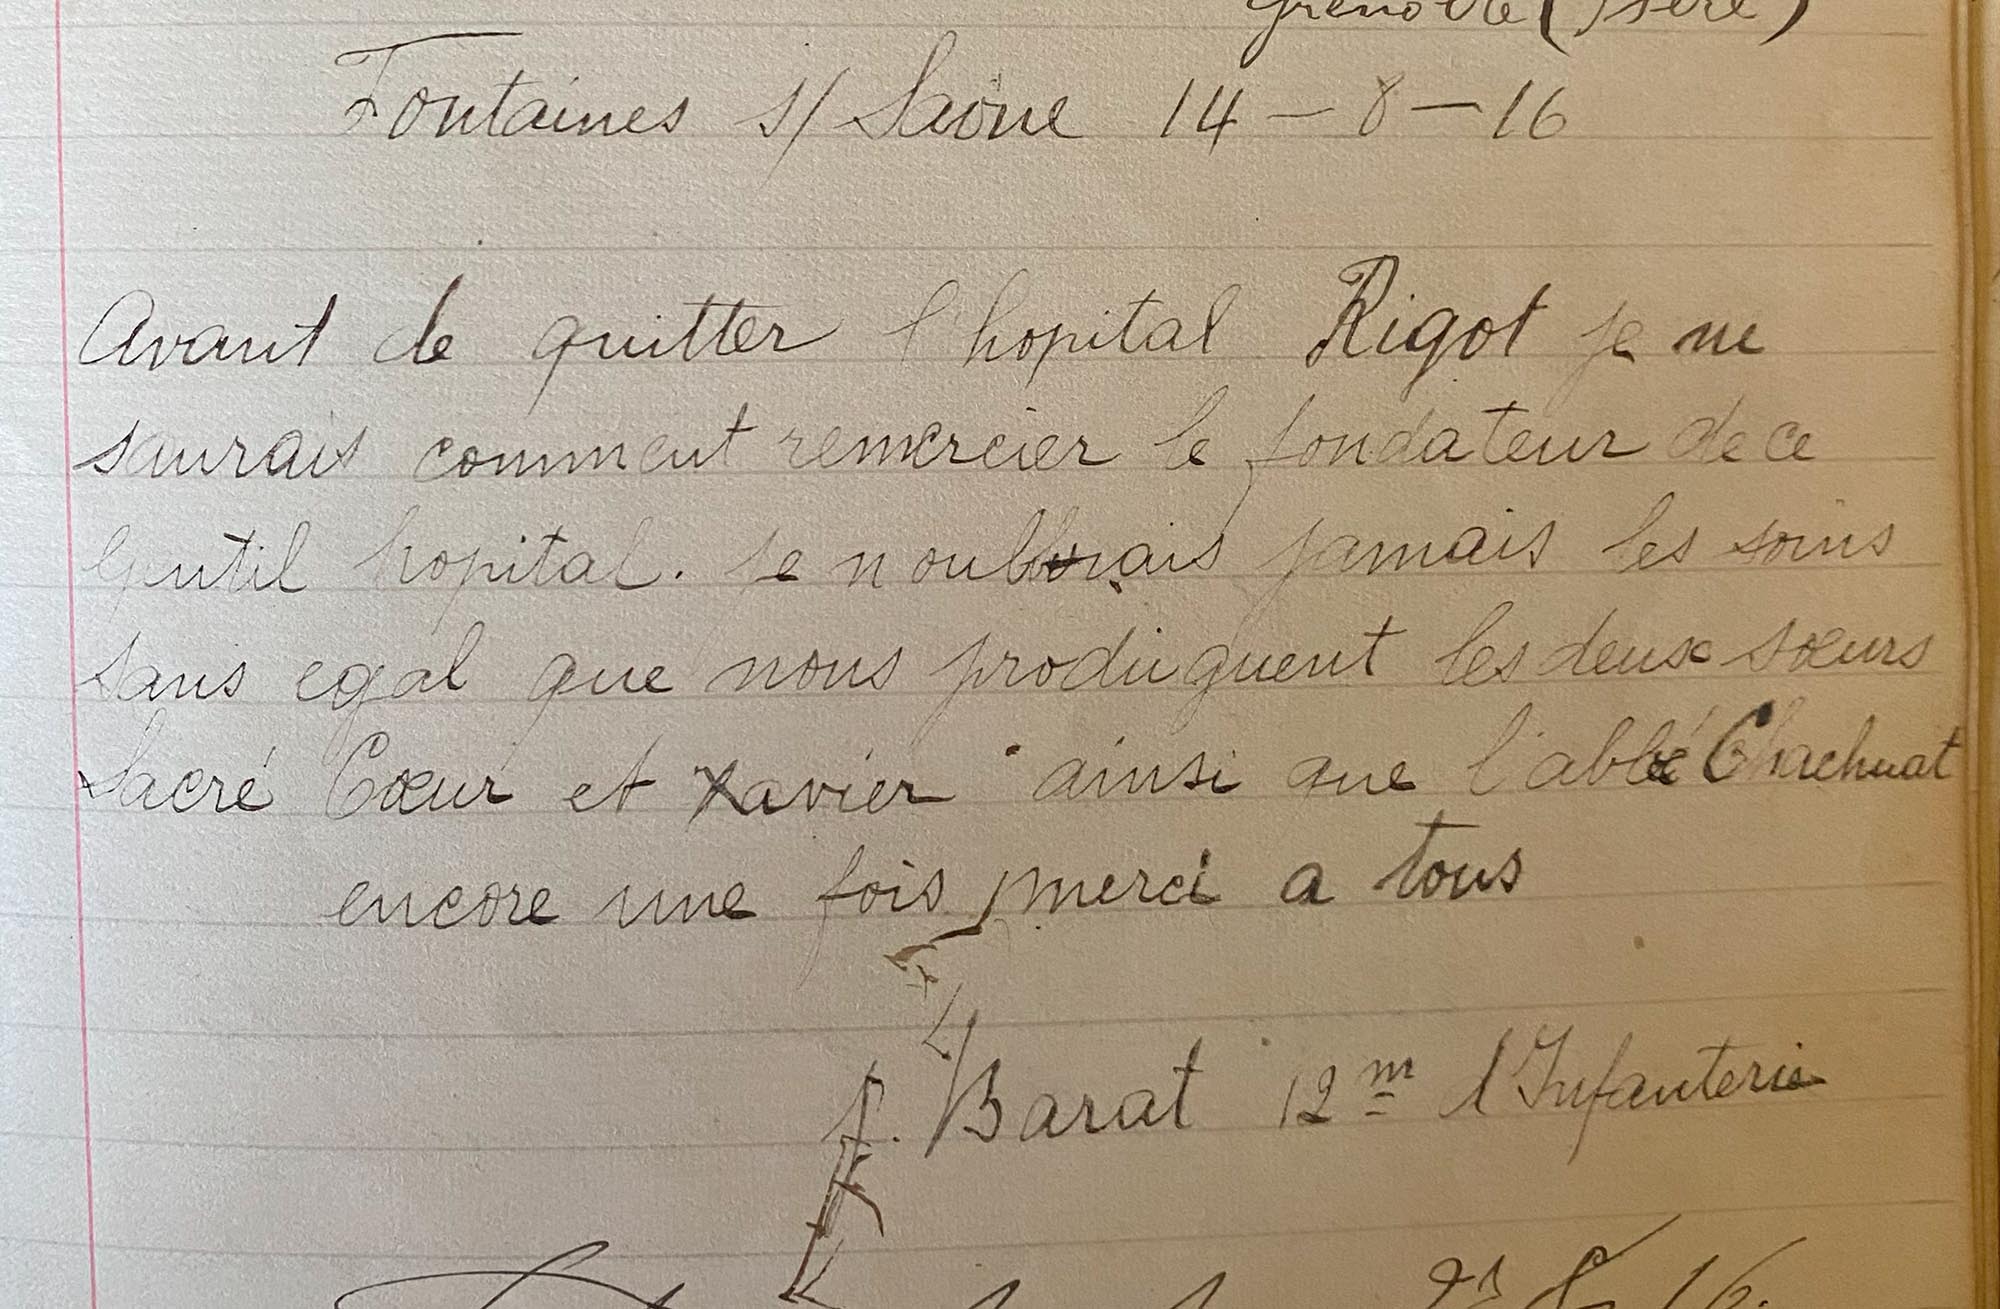 Grenoble (Isère)
Fontaines s/ Saône 14 - 8 - 16
Avant de quitter l'hopital Rigot je ne
saurais comment remercier le fondateur de ce
gentil hopital. je n oublirais jamais les soins
sans egal que nous produiguent les deux sœurs
Sacré Cœur et Xavier ainsi que l'abbé Chachuat
encore une fois merci a tous
f. Barat 12m d'Infanterie